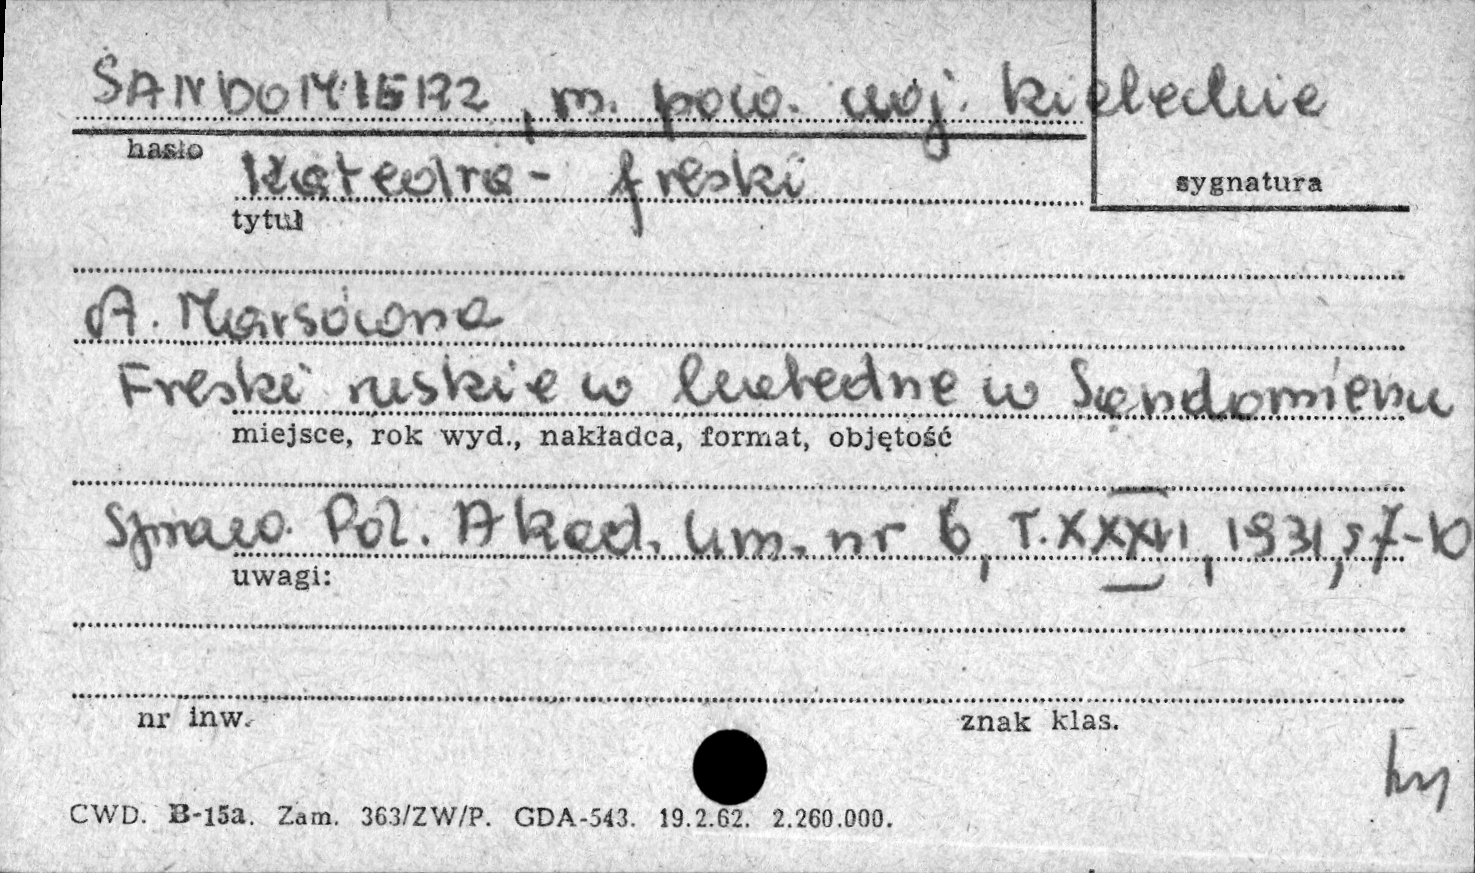 SANDOMIERZ, m. pow. woj. kieleckie
hasło
Katedra - freski
sygnatura
tytuł
A. Marsówna
Freski ruskie w katedrze w Sandomierzu
miejsce, rok wyd., nakładca, format, objętość
Spraw. Pol. Akad. Um. nr 6, T. XXXVI, 1931, s 7-10
uwagi:
nr inw.
znak klas.
CWD. B-15a. Zam. 363/ZW/P. GDA-543. 19.2.62. 2.260.000.